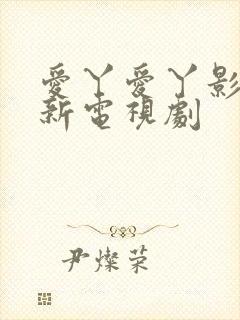 愛丫愛丫影
新電視劇
尹燦荣